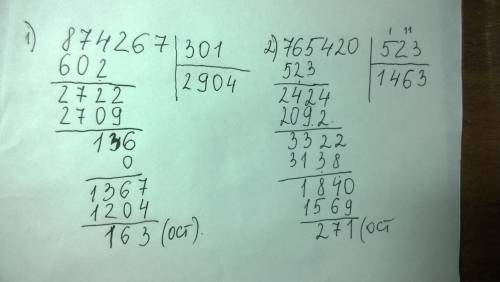 1) 874267 | 301
602 | 2904
2722
2709
136
0
1367
1204
163 (ост).
2) 765420 | 523
523 | 1463
2424
2092
3322
3138
1840
1569
271 (ост